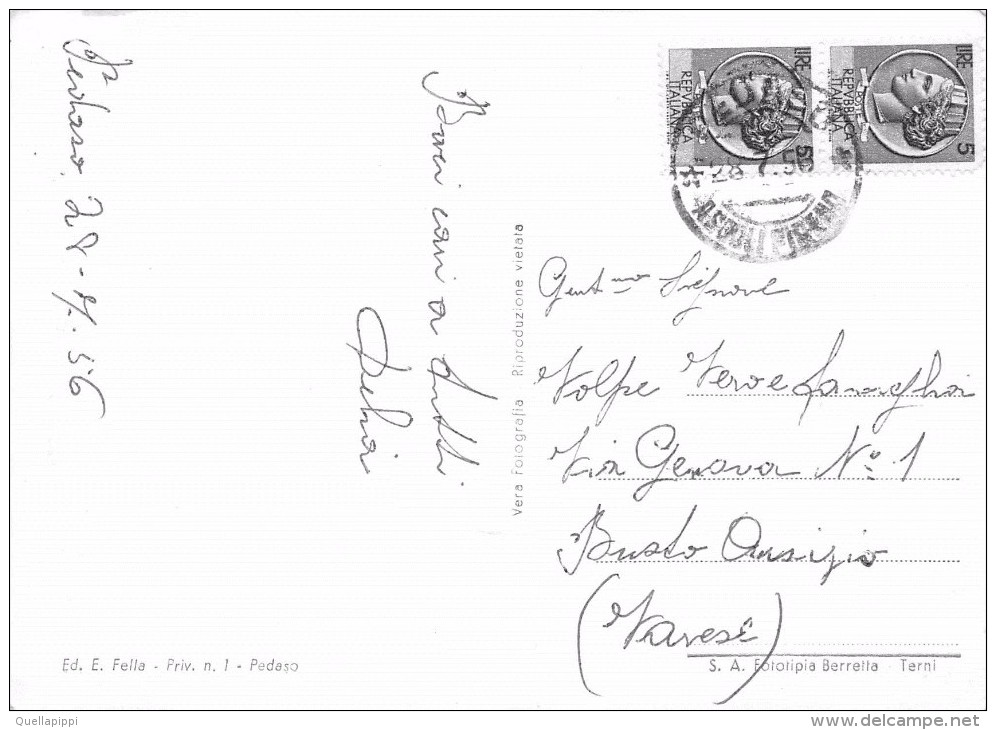 Pedaso, 28-7-56
Baci cari a tutti
LIRE 5
REPVBBLICA
ITALIANA
LIRE 5
REPVBBLICA
ITALIANA
Vera Fotografia Riproduzione vietata
Gent.mo Signore
Volpe famiglia
Via Genova N° 1
Busto Arsizio
(Varese)
Ed. E. Fella - Priv. n. 1 - Pedaso
S. A. Fototipia Berretta - Terni
Quellapippi
www.delcampe.net